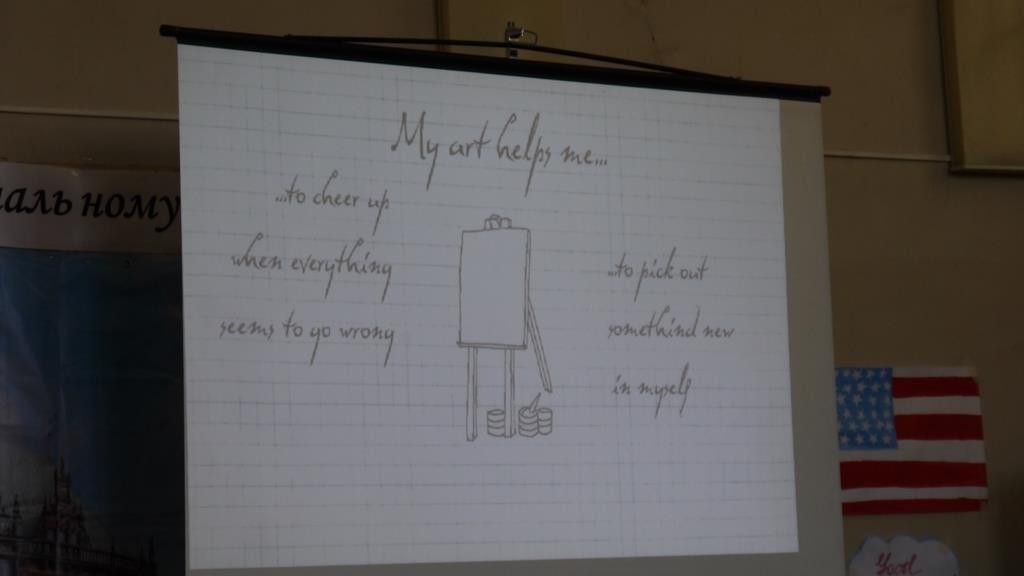 My art helps me...
...to cheer up
when everything
seems to go wrong
...to pick out
somethind new
in myself
аль ному
Good